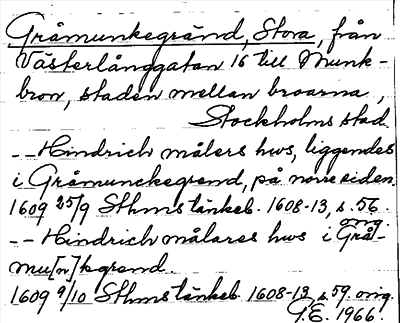 Gråmunkegränd, Stora, från
Västerlånggatan 16 till Munk-
bron, staden mellan broarna,
Stockholms stad.
-- Hindrich målers hws, liggendes
i Gråmunckegrend, på norre siden.
1609 25/9 Sthms tänkeb. 1608-13, s. 56
orig.
-- Hindrich målares hws i Grå-
mu[n]kgrend.
1609 9/10 Sthms tänkeb. 1608-13, s. 59 orig.
G.E. 1966.